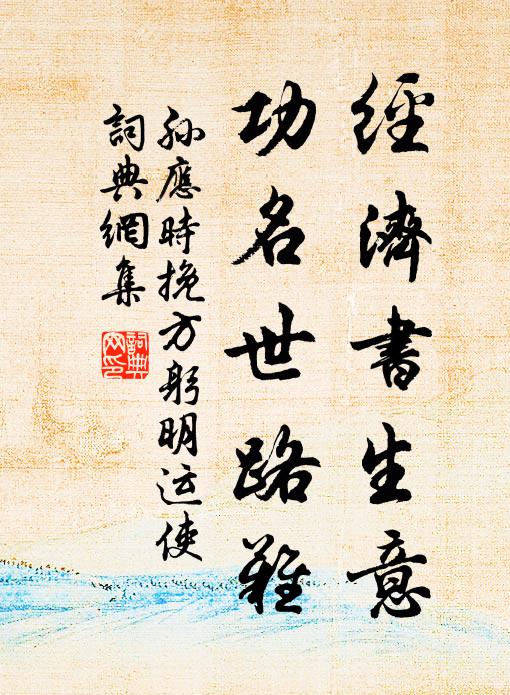 經濟書生意
功名世路難
孫應時挽方躬明运使
詞典網集
詞典網印